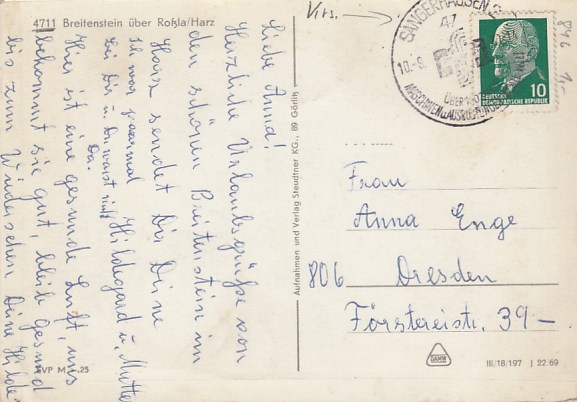 4711 Breitenstein über Roßla/Harz
Liebe Anna!
Herzliche Urlaubsgrüße von
den schönen Breitenstein im
Harz sendet Dir Deine
Hildegard u. Mutter
Ich war paarmal
bei Dir u. Du warst nicht
Da.
Hier ist eine gesunde Luft, uns
bekommt sie gut, bleib gesund
bis zum Wiedersehen Deine Hilde
EVP M -.25
Aufnahmen und Verlag Steudtner KG., 89 Görlitz
Virs.
SANGERHAUSEN 2
47
10.-8.
ÜBER
846
10
DEUTSCHE
DEMOKRATISCHE REPUBLIK
Frau
Anna Enge
806 Dresden
Förstereistr. 39-
DAMW
III/18/197 J 22 69